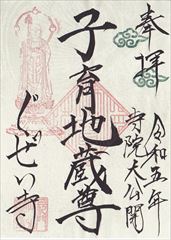 奉拝
令和五年
寺院大公開
子育地蔵尊
ぐぜい寺